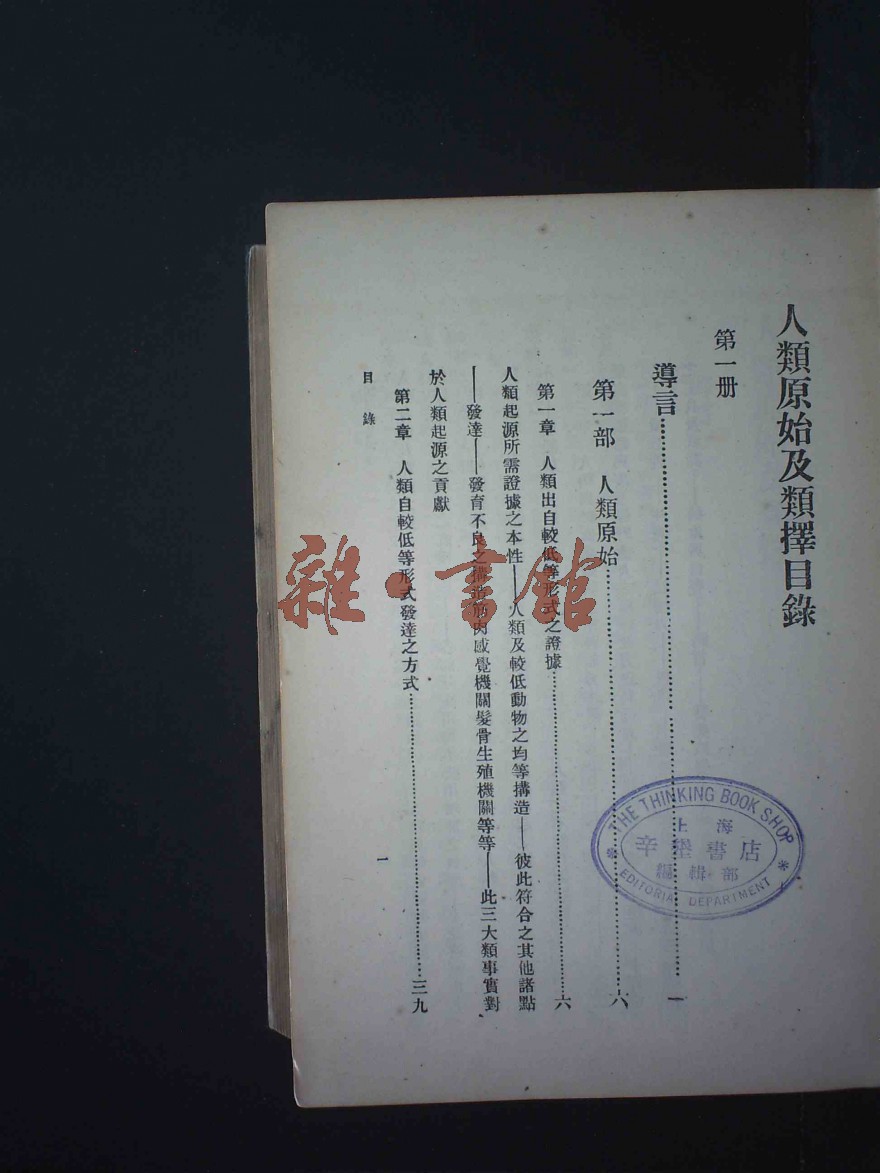 人類原始及類擇目錄
第一册
導言……一
第一部 人類原始……六
第一章 人類出自較低等形式之證據……六
人類起源所需證據之本性——人類及較低動物之均等構造——彼此符合之其他諸點
——發達——發育不良之構造筋肉感覺機關髮骨生殖機關等等——此三大類事實對
於人類起源之貢獻
第二章 人類自較低等形式發達之方式……三九
目錄
一
THE THINKING BOOK SHOP
上海
辛墾書店
編輯部
EDITORIAL DEPARTMENT
雜·書館